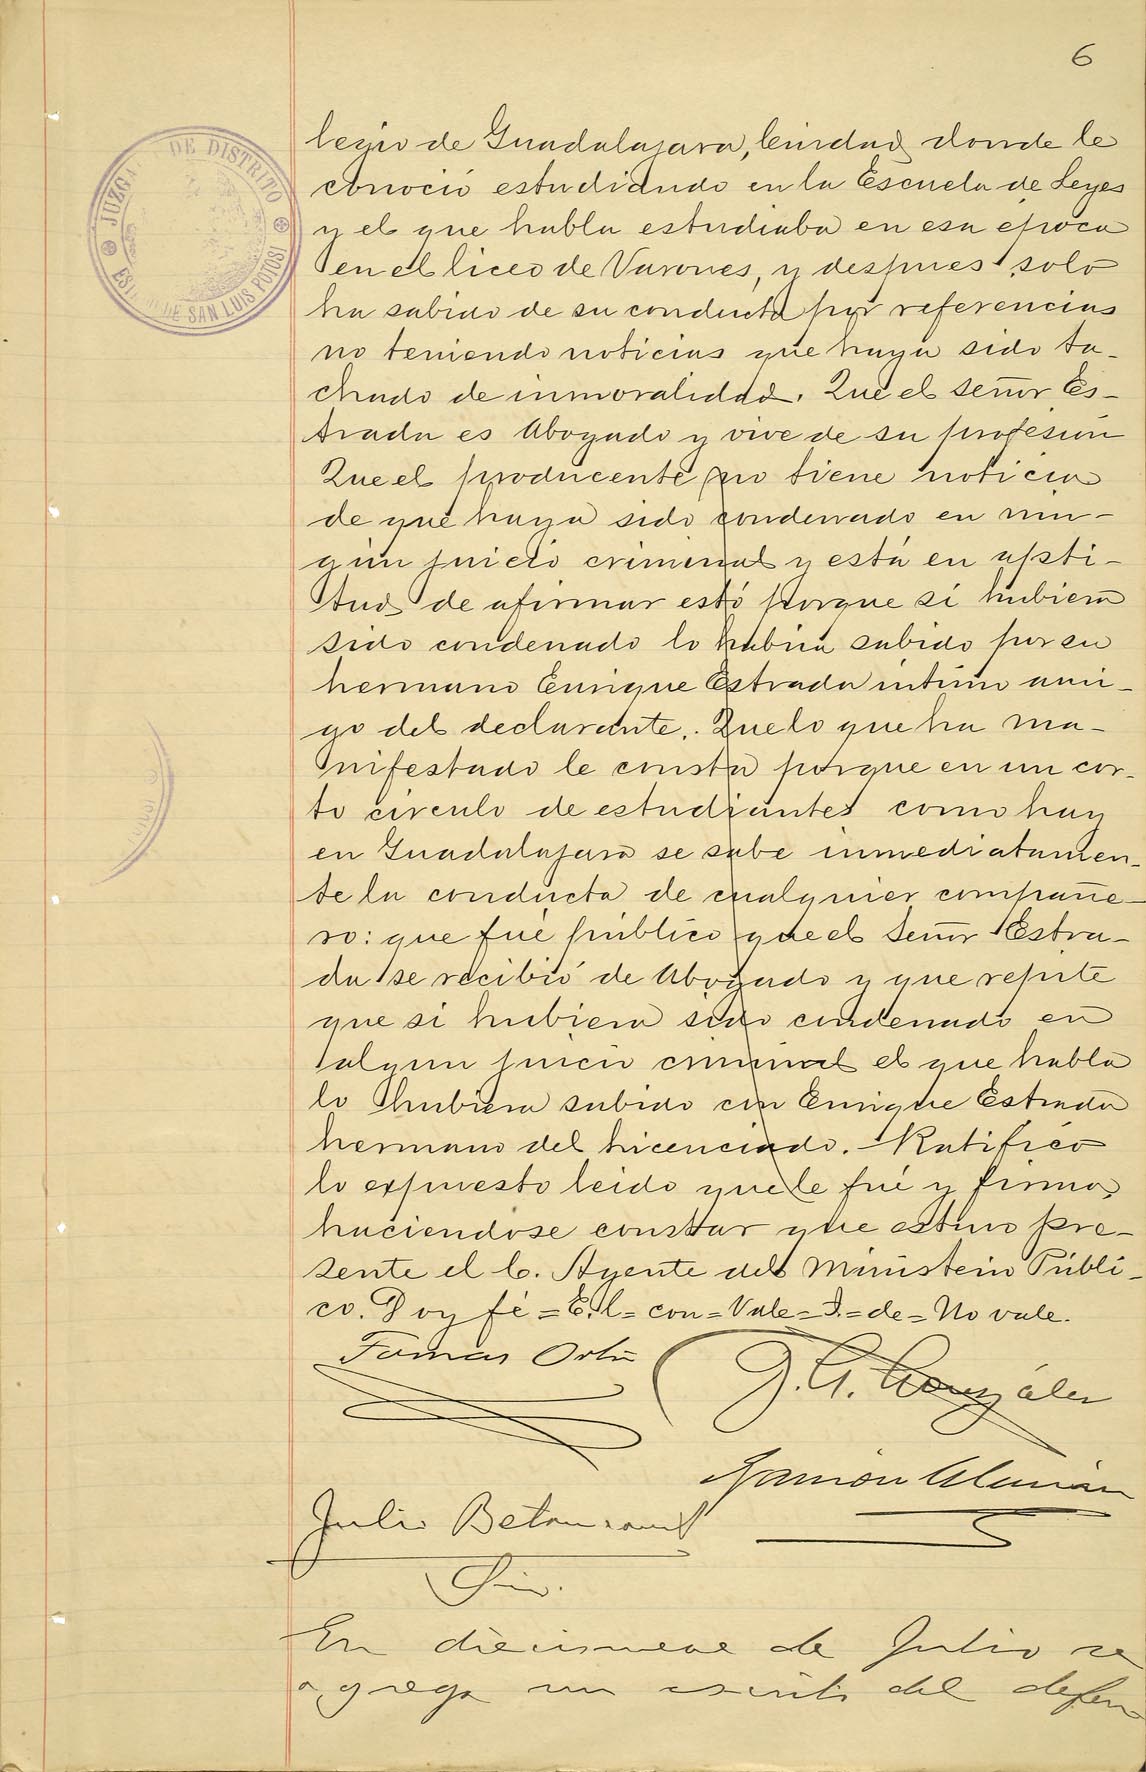 6
JUZGADO DE DISTRITO
ESTADO DE SAN LUIS POTOSI
legio de Guadalajara, Ciudad donde le
conoció estudiando en la Escuela de Leyes
y el que habla estudiaba en esa época
en el liceo de Varones, y despues solo
ha sabido de su conducta por referencias
no teniendo noticias que haya sido ta-
chado de inmoralidad. Que el señor Es-
trada es Abogado y vive de su profesión
Que el producente no tiene noticia
de que haya sido condenado en nin-
gún juicio criminal y está en apti-
tud de afirmar esto porque si hubiera
sido condenado lo habria sabido por su
hermano Enrique Estrada intimo ami-
go del declarante. Que lo que ha ma-
nifestado le consta porque en un cor-
to circulo de estudiantes como hay
en Guadalajara se sabe inmediatamen-
te la conducta de cualquier compañe-
ro: que fué público que el Señor Estra-
da se recibió de Abogado y que repite
que si hubiera sido condenado en
algun juicio criminal el que habla
lo hubiera sabido con Enrique Estrada
hermano del Licenciado. Ratificó
lo expuesto leido que le fué y firmó,
haciendose constar que estuvo pre-
sente el C. Agente del Ministerio Públi-
co. Doy fé = E.l = con = Vale = T. = de = No vale.
Tomas Ortiz
G. G. González
Ramón Alemán
Julio Betancourt
Srio.
En diecinueve de Julio se
agrega un escrito del defen